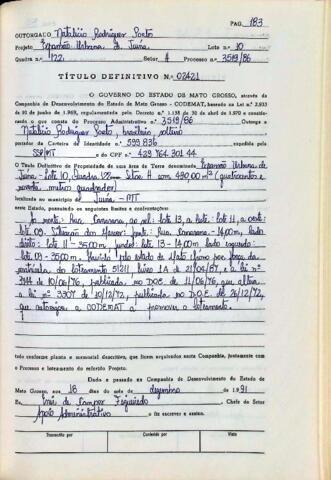 PAG. 183
OUTORGADO Natalício Rodrigues Porto
Projeto Expansão Urbana de Juína Lote n.º 10
Quadra n.º 122 Setor H Processo n.º 3519/86
TÍTULO DEFINITIVO N.º 02421
O GOVERNO DO ESTADO DE MATO GROSSO, através da
Companhia de Desenvolvimento do Estado de Mato Grosso - CODEMAT, baseado na Lei n.º 2.933
de 01 de junho de 1.969, regulamentada pelo Decreto n.º 1.138 de 30 de abril de 1.970 e considerando o que consta do Processo Administrativo n.º 3519/86 Outorga a
Natalício Rodrigues Porto, brasileiro, solteiro
portador da Carteira de Identidade n.º 599.836 expedida pela
SSP/MT e do CPF n.º 429 764 301 44
O Título Definitivo de Propriedade de uma área de Terra denominada Expansão Urbana de
Juína - Lote 10, Quadra 122 Setor H com 490.00 m² (quatrocentos e
noventa metros quadrados)
localizada no município de Juína - MT
neste Estado, possuindo os seguintes limites e confrontações:
Ao norte: Rua Canasana, ao sul: lote 13, a leste: lote 11, a oeste:
lote 09. frente: Rua Canasana - 14,00m, lado
direito: lote 11 - 35,00m, fundos: lote 13 - 14,00m lado esquerdo:
lote 09 - 35,00m. pelo estado de Mato Grosso por força da
matrícula do loteamento 51211 livro 1A de 21/04/87, e a lei nº
3744 de 10/06/76, publicada no D.O.E. de 11/06/76, que altera
a lei nº 3307 de 10/12/72, publicada no D.O.E. de 26/12/72,
que autoriza a CODEMAT a promover o loteamento.
tudo conforme planta e memorial descritivo, que ficam arquivados nesta Companhia, juntamente com
o Processo e loteamento do referido Projeto.
Dado e passado na Companhia de Desenvolvimento do Estado de
Mato Grosso, aos 18 dias do mês de dezembro de 1991
Eu Enis de Campos Figueiredo, Chefe do Setor
Apoio Administrativo o fiz escrever e assino.
Transcrito por Conferido por Visto